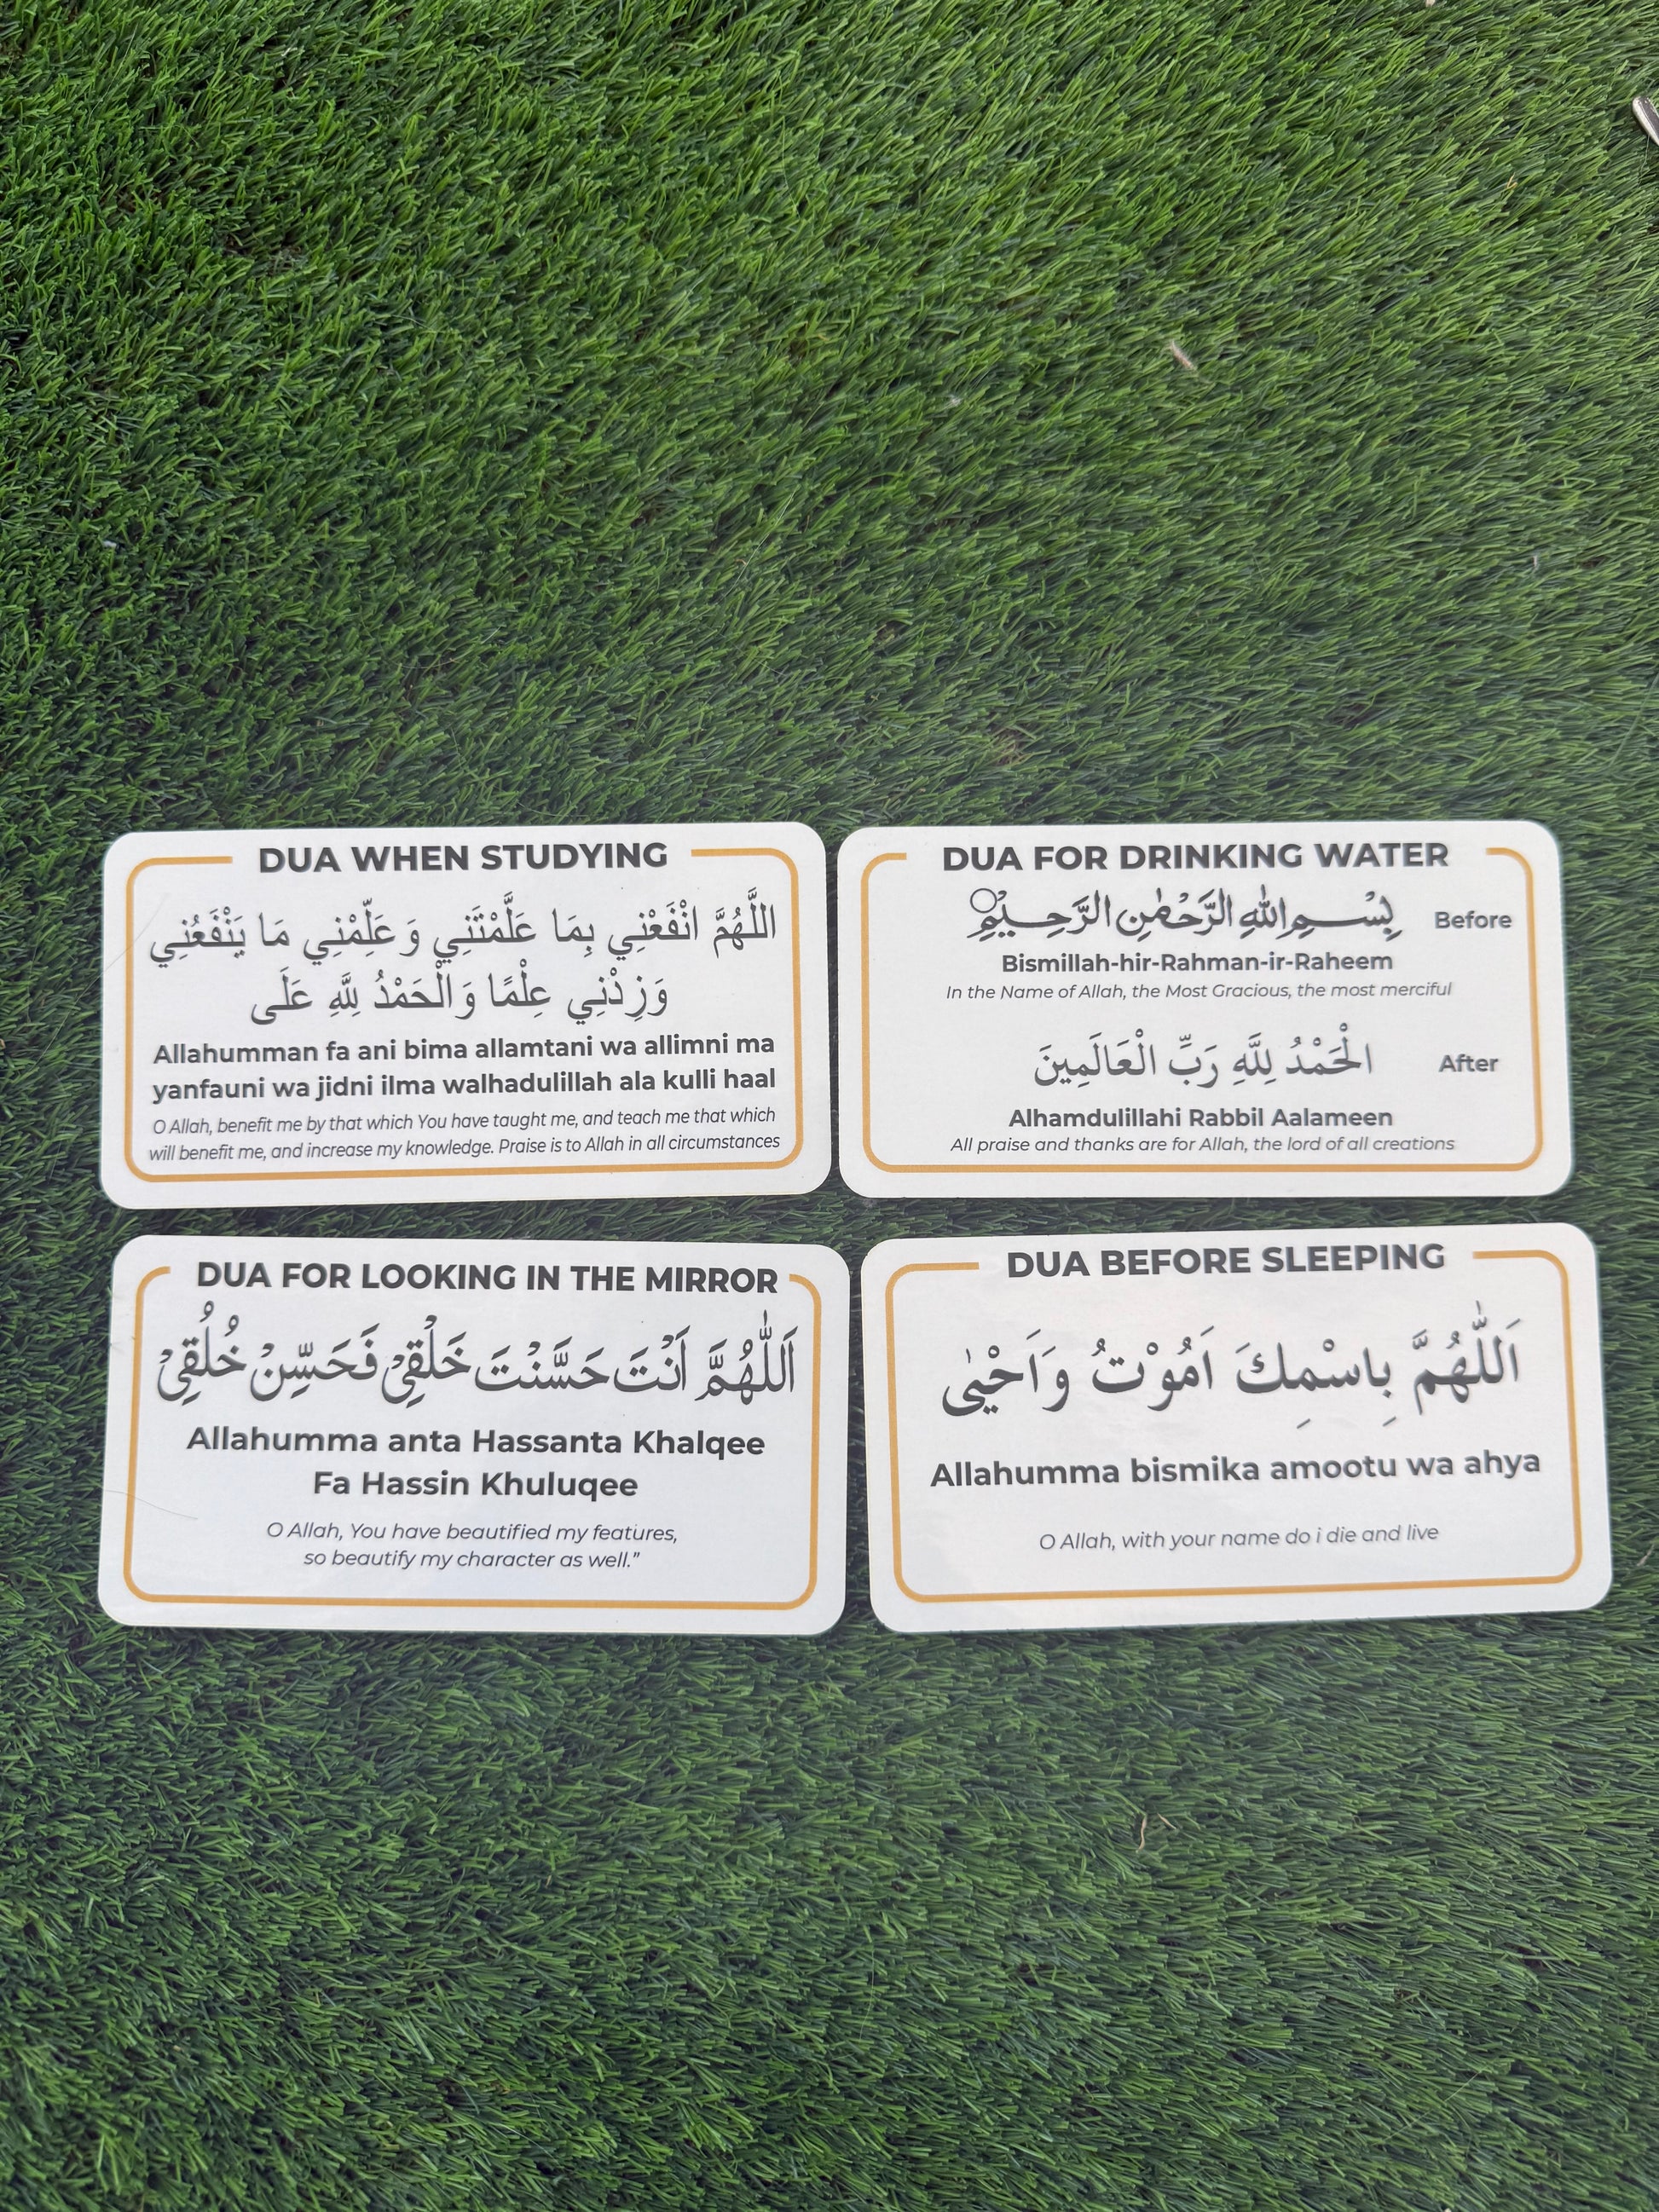 DUA WHEN STUDYING
اللَّهُمَّ انْفَعْنِي بِمَا عَلَّمْتَنِي وَعَلِّمْنِي مَا يَنْفَعُنِي
وَزِدْنِي عِلْمًا وَالْحَمْدُ لِلَّهِ عَلَى
Allahumman fa ani bima allamtani wa allimni ma
yanfauni wa jidni ilma walhadulillah ala kulli haal
O Allah, benefit me by that which You have taught me, and teach me that which
will benefit me, and increase my knowledge. Praise is to Allah in all circumstances
DUA FOR DRINKING WATER
بِسْمِ اللهِ الرَّحْمٰنِ الرَّحِيْمِ Before
Bismillah-hir-Rahman-ir-Raheem
In the Name of Allah, the Most Gracious, the most merciful
الْحَمْدُ لِلَّهِ رَبِّ الْعَالَمِينَ After
Alhamdulillahi Rabbil Aalameen
All praise and thanks are for Allah, the lord of all creations
DUA FOR LOOKING IN THE MIRROR
اَللّٰهُمَّ اَنْتَ حَسَّنْتَ خَلْقِيْ فَحَسِّنْ خُلُقِيْ
Allahumma anta Hassanta Khalqee
Fa Hassin Khuluqee
O Allah, You have beautified my features,
so beautify my character as well."
DUA BEFORE SLEEPING
اَللّٰهُمَّ بِاسْمِكَ اَمُوْتُ وَاَحْيٰى
Allahumma bismika amootu wa ahya
O Allah, with your name do i die and live